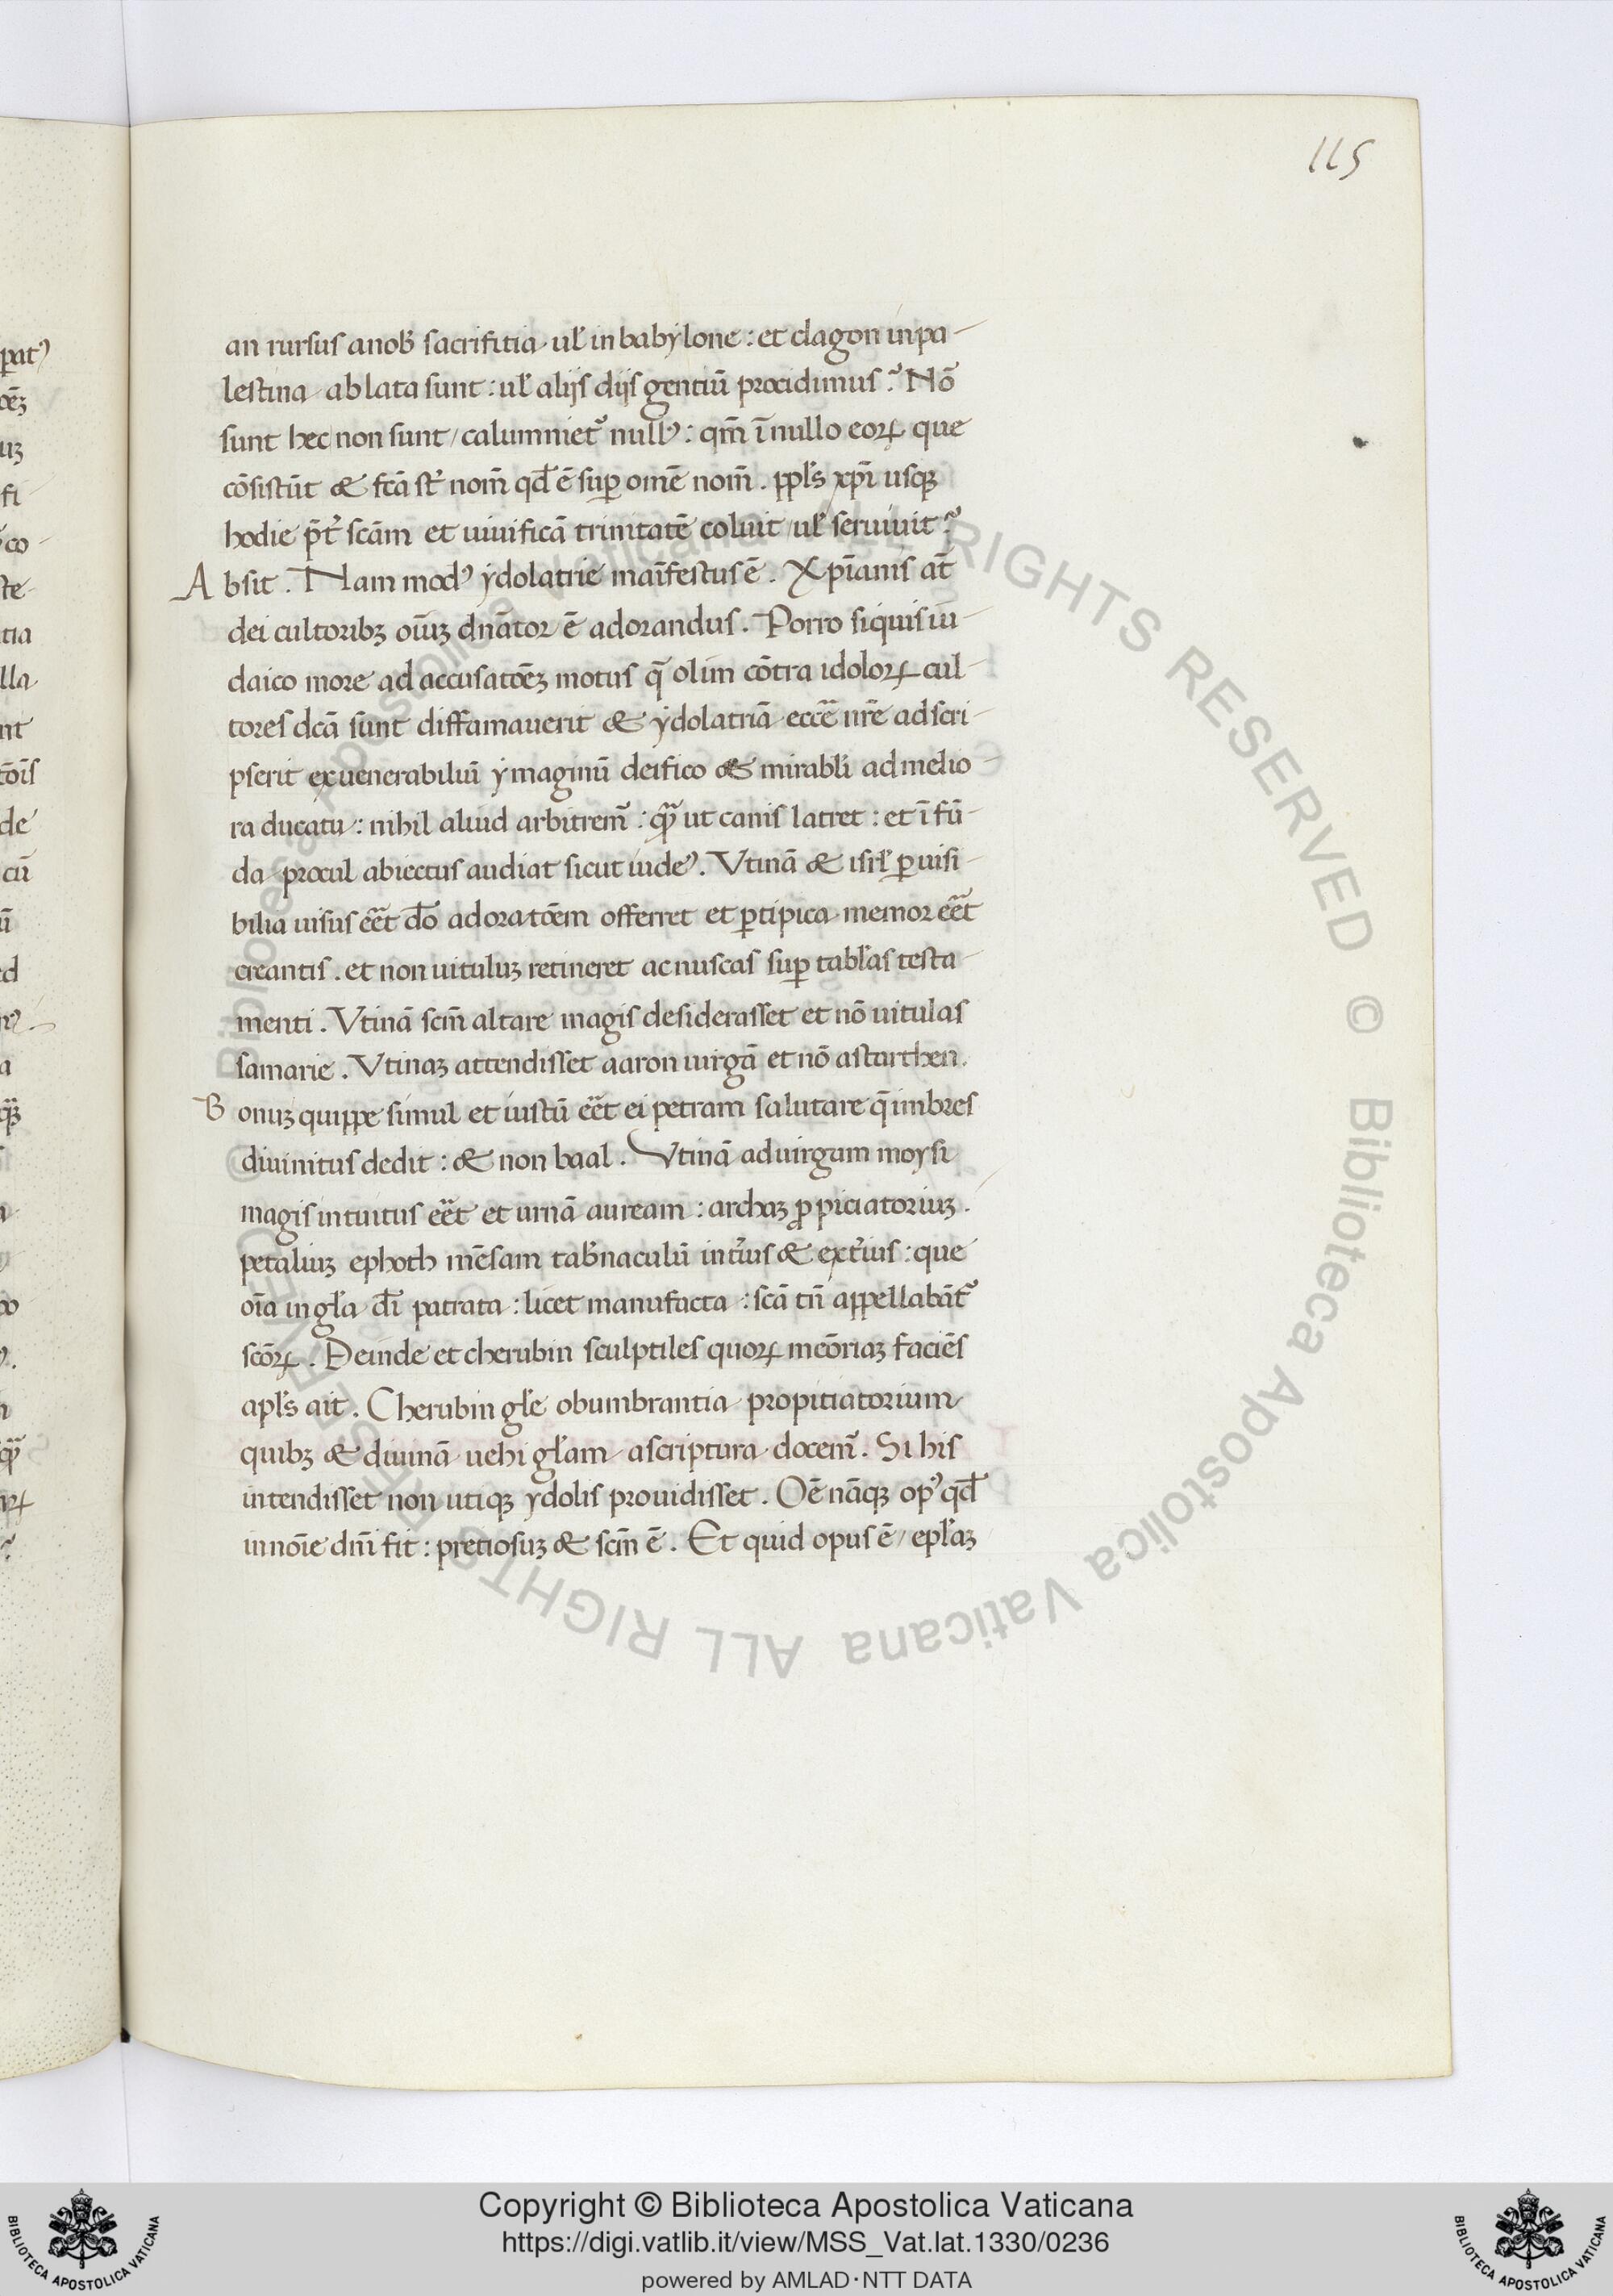 115
an rursus anob̄ sacrifitia. ul̄ in babylone : et dagon in pa-
lestina ablata sunt : ul̄ alijs dijs gentiū procidimus ? Nō
sunt hec non sunt / calumniet᷑ nullꝰ : qm̄ ī nullo eoꝝ que
cōsistūt & fcā st̄ nom̄ qđ ē suꝑ om̄e nom̄ . ppl̄s xp̄i usqꝫ
hodie p̄t̄ scām et uiuificā trinitatē coluit / ul̄ seruiuit ?
Absit . Nam modꝰ ydolatrie manīfestus ē . Xp̄ianis at̄
dei cultoribꝫ oīuꝫ dn̄ator ē adorandus . Porro siquis iu-
daico more ad accusatōeꝫ motus q̄ olim cōtra idoloꝝ cul-
tores dc̄a sunt diffamauerit & ydolatriā ecc̄e nr̄e adscri-
pserit ex uenerabiliū ymaginū deifico & mirabl̄i ad melio-
ra ducatu : nihil aliud arbitrem᷑ : qꝫ̄ ut canis latret : et ī fū-
da procul abiectus audiat sicut iudeꝰ . Vtinā & isrl̄ ꝑ uisi-
bilia uisus eēt dō adoratōem offerret et ꝑ tipica memor eēt
creantis . et non uituluꝫ retineret ac nuscas suꝑ tabl̄as testa-
menti . Vtinā scm̄ altare magis desiderasset et nō uitulas
samarie . Vtinaꝫ attendisset aaron uirgā et nō astarthen .
Bonuꝫ quippe simul et iustū eēt ei petram salutare q̄ imbres
diuinitus dedit : & non baal . Vtinā ad uirgam moysi
magis intuitus eēt et urnā auream : archaꝫ ꝓpiciatoriuꝫ .
petaliuꝫ ephoth mēsam tab̄naculū int̄ius & ext̄ius : que
oīa in gl̄a dī patrata : licet manufacta : scā tn̄ appellabāt᷑
scōꝝ . Deinde et cherubin sculptiles quoꝝ meōriaꝫ faciēs
apl̄s ait . Cherubin gl̄e obumbrantia propitiatorium
quibꝫ & diuinā uehi gl̄am a scriptura docem᷑ . Si his
intendisset non utiqꝫ ydolis prouidisset . Oē nāqꝫ opꝰ qđ
in noīe dn̄i fit : pretiosuꝫ & scm̄ ē . Et quid opus ē / epl̄aꝫ
Copyright © Biblioteca Apostolica Vaticana
https://digi.vatlib.it/view/MSS_Vat.lat.1330/0236
powered by AMLAD·NTT DATA